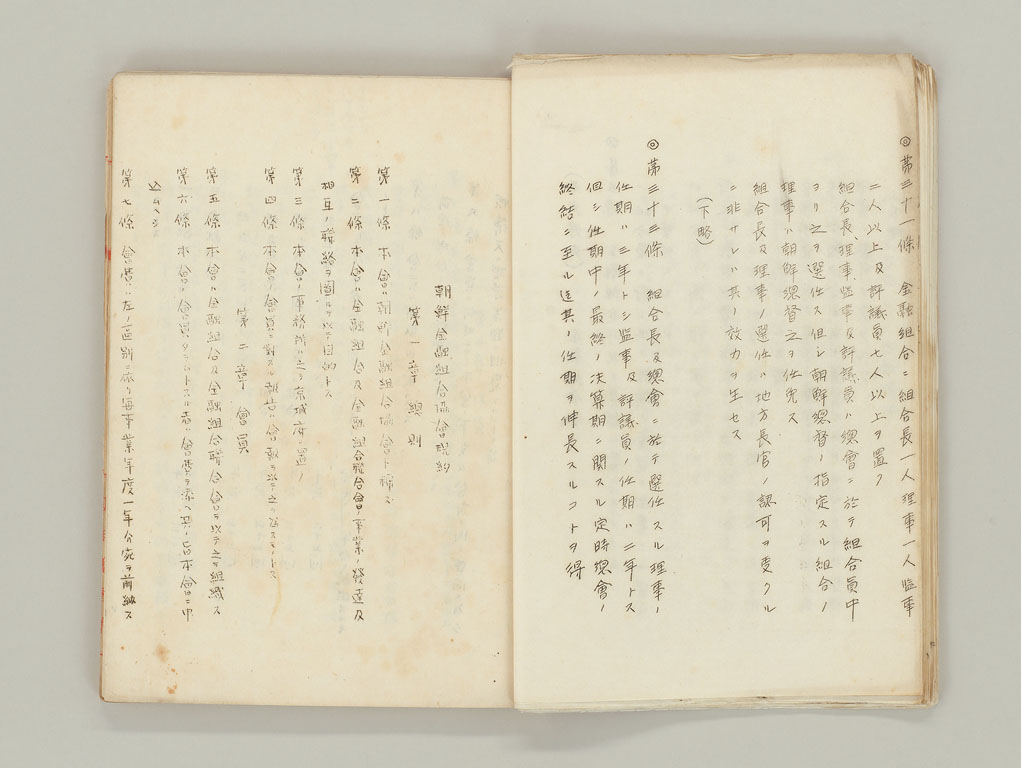 ◎第三十一條 金融組合ニ組合長一人理事一人監事
二人以上及評議員七人以上ヲ置ク
組合長、理事、監事及評議員ハ總會ニ於テ組合員中
ヨリ之ヲ選任ス但シ朝鮮總督ノ指定スル組合ノ
理事ハ朝鮮總督之ヲ任免ス
組合長及理事ノ選任ハ地方長官ノ認可ヲ受クル
ニ非サレハ其ノ效力ヲ生セス
(下略)
◎第三十三條 組合長及總會ニ於テ選任スル理事ノ
任期ハ三年トシ監事及評議員ノ任期ハ二年トス
但シ任期中ノ最終ノ決算期ニ關スル定時總會ノ
終結ニ至ル迄其ノ任期ヲ伸長スルコトヲ得
朝鮮金融組合協會規約
第一章 總則
第一條 本會ハ朝鮮金融組合協會ト稱ス
第二條 本會ハ金融組合及金融組合聯合會ノ事業ノ發達及
相互ノ聯絡ヲ圖ルヲ以テ目的トス
第三條 本會ノ事務所ハ之ヲ京城府ニ置ク
第四條 本會ノ會員ニ對スル報告ハ會報ヲ以テ之ヲ爲スモノトス
第二章 會員
第五條 本會ハ金融組合及金融組合聯合會ヲ以テ之ヲ組織ス
第六條 本會ノ會員タラントスル者ハ會費ヲ添ヘ其ノ旨本會ニ申
込ムヘシ
第七條 會費ハ左ノ區別ニ依リ每事業年度一年分宛ヲ前納ス